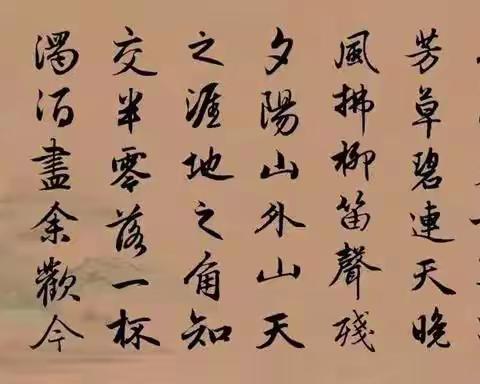 芳草碧連天晚
風拂柳笛聲殘
夕陽山外山天
之涯地之角知
交半零落一杯
濁酒盡余歡今